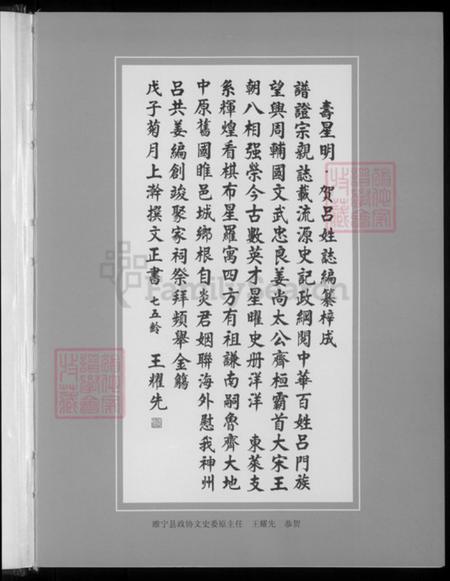 壽星明·賀呂姓誌編纂梓成
譜證宗親誌載流源史記政綱閱中華百姓呂門族
望興周輔國文武忠良姜尚太公齊桓霸首大宋王
朝八相强榮今古數英才星曜史册洋洋 東萊支
系輝煌看棋布星羅寓四方有祖謙南嗣魯齊大地
中原舊國睢邑城鄉根自炎君姻聯海外慰我神州
呂共姜編創竣聚家祠祭拜頻舉金觴
戊子菊月上澣撰文正書 七五齡 王耀先
睢宁县政协文史委原主任 王耀先 恭贺
FamilySearch